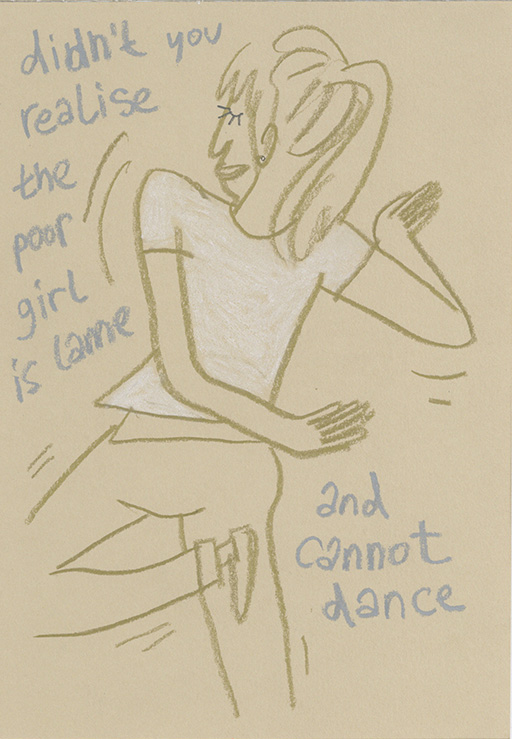 didn't you
realise
the
poor
girl
is lame
and
cannot
dance